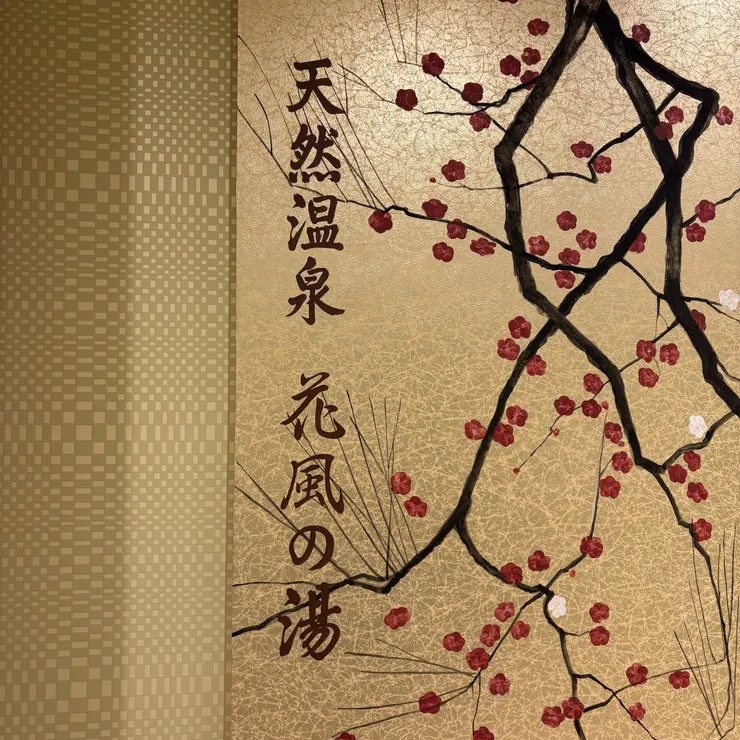 天然温泉 花風の湯